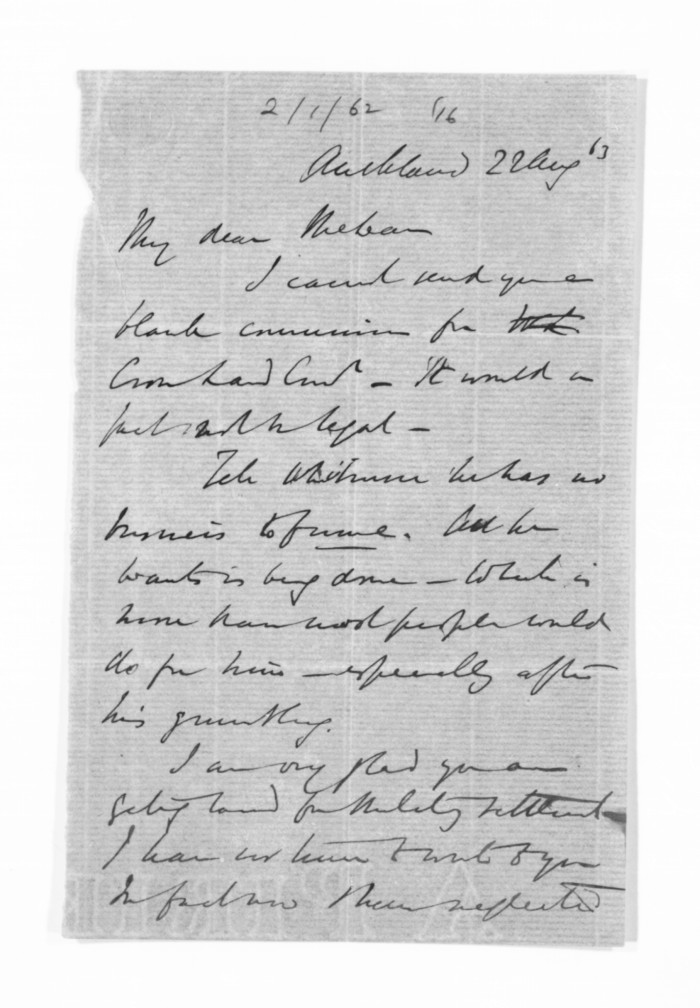 2/1/62 '16
Auckland 22 Aug '63
My dear McLean
I cannot send you a
blank commission for
Crown Land Comr - It would in
fact not be legal -
Tell Whitmore he has no
business to fume. All he
wants is being done - Which is
more than most people would
do for him - especially after
his grumbling.
I am very glad you are
getting land for Military settlement
I have no time to write to you
In fact now I have neglected